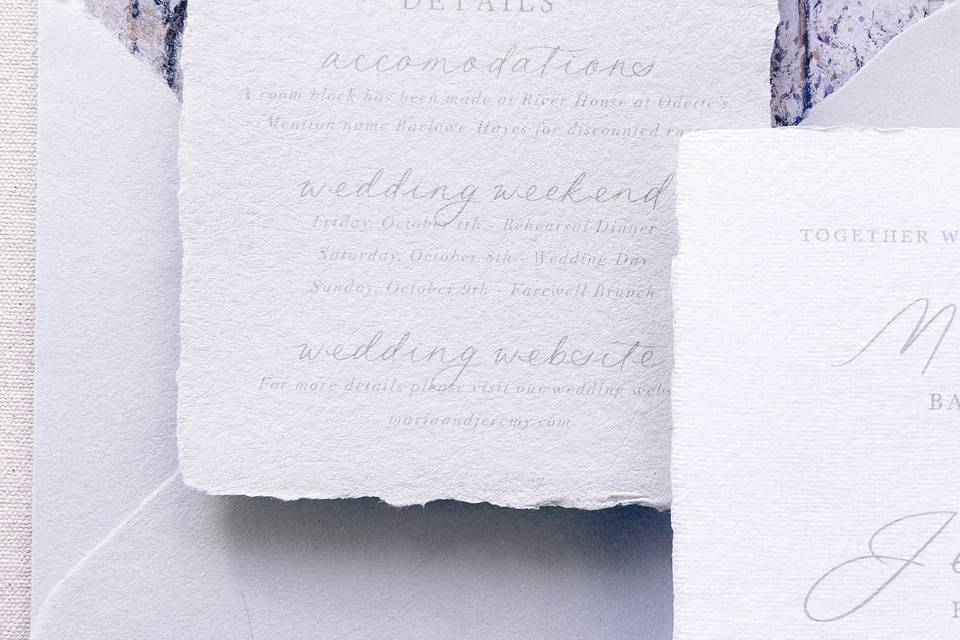 DETAILS
accomodations
A room block has been made at River House at Odette's
Mention name Barlowe Hayes for discounted
wedding weekend
Friday, October 7th - Rehearsal Dinner
Saturday, October 8th - Wedding Day
Sunday, October 9th - Farewell Brunch
wedding website
For more details please visit our wedding webs
mariaandjeremy.com
TOGETHER W
M
BA
Je